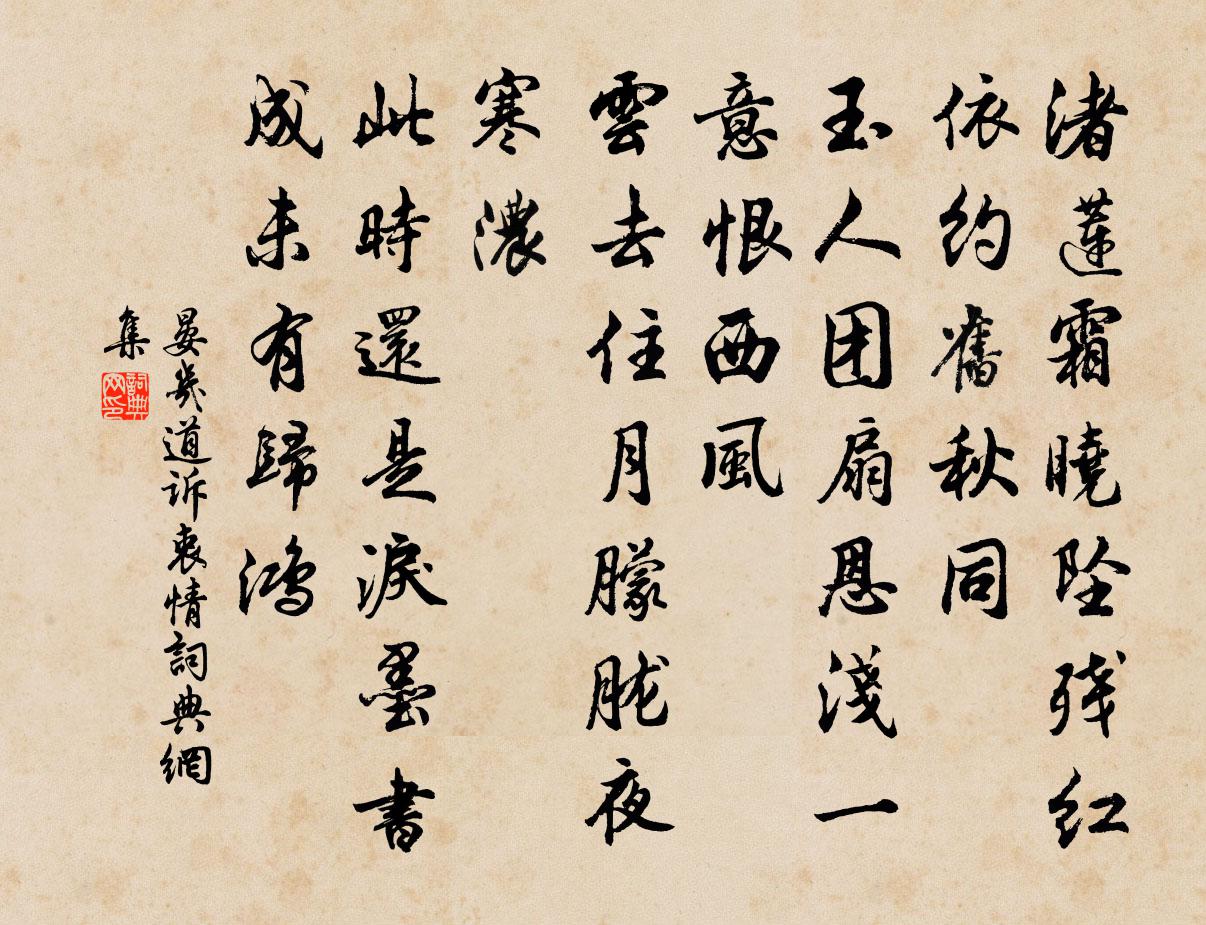 渚蓮霜曉墜残红
依約舊秋同
玉人团扇恩淺一
意恨西風
雲去住月朦胧夜
寒濃
此時還是淚墨書
成未有歸鴻
晏幾道訴衷情詞典網
集
詞典
网印